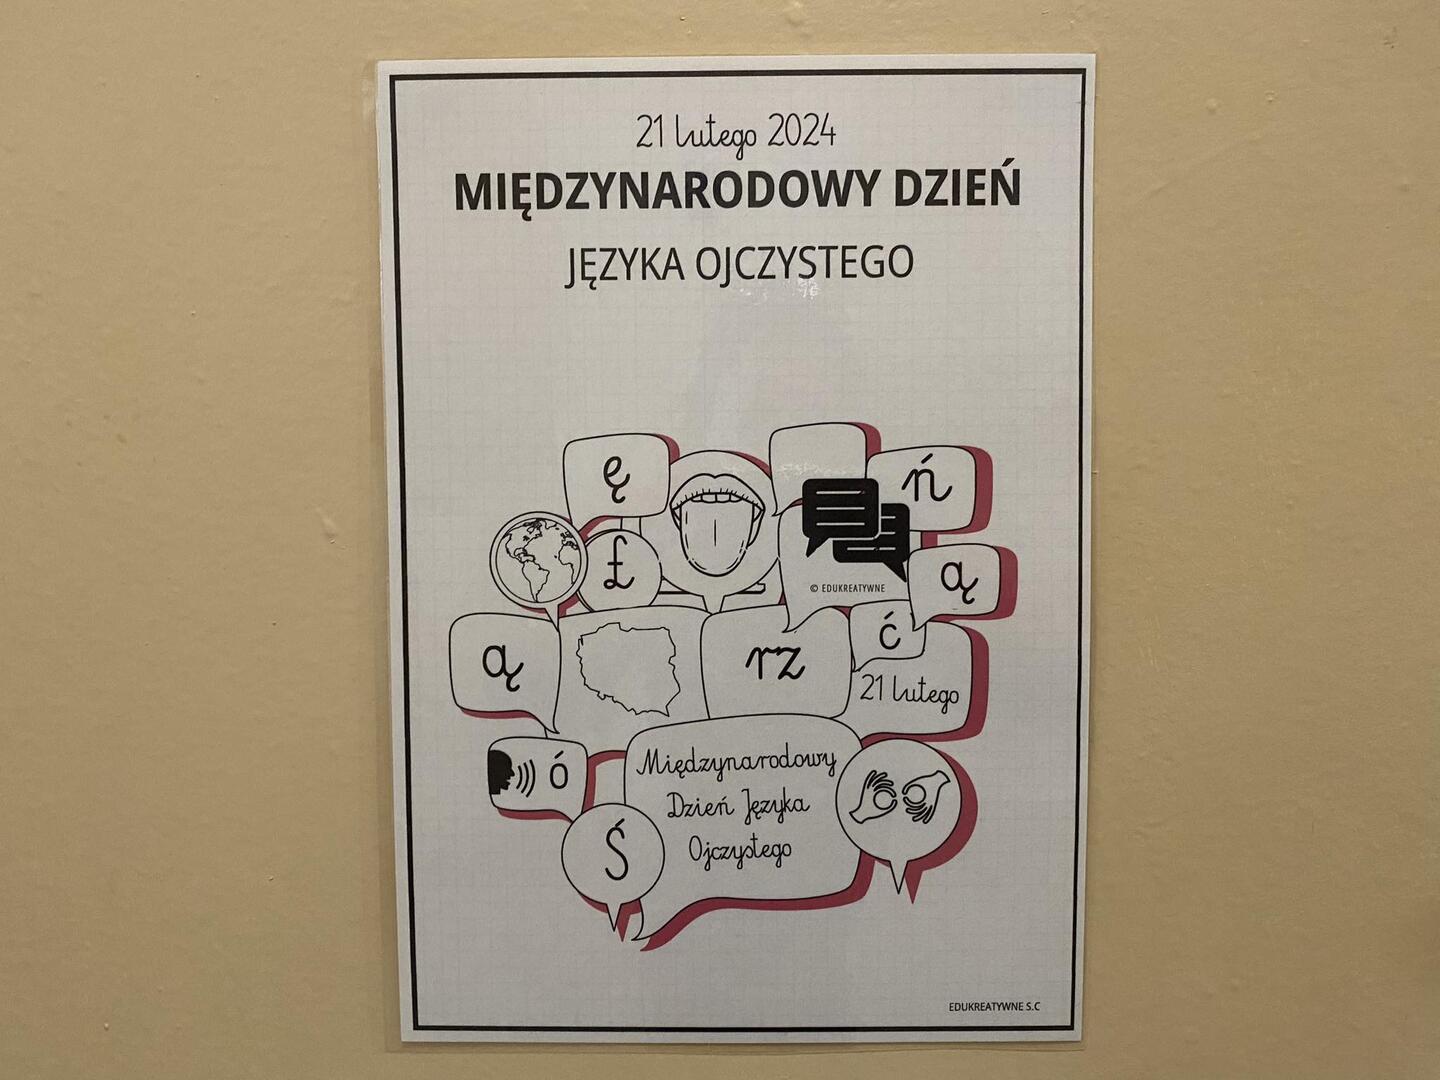 21 lutego 2024
MIĘDZYNARODOWY DZIEŃ
JĘZYKA OJCZYSTEGO
ę
ń
ł
ą
© EDUKREATYWNE
ą
rz
ć
21 lutego
ó
Międzynarodowy
Dzień Języka
Ojczystego
Ś
EDUKREATYWNE S.C